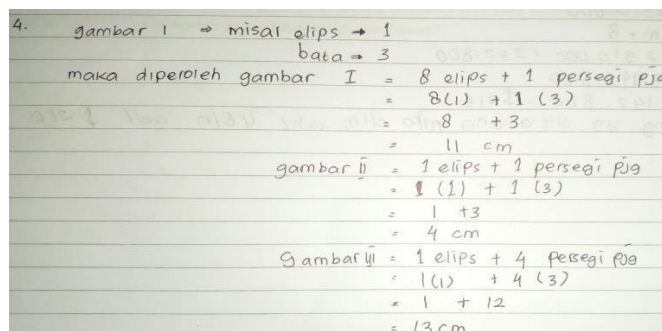 4. gambar 1 ⇒ misal elips → 1
bata → 3
maka diperoleh gambar I = 8 elips + 1 persegi pjg
= 8(1) + 1 (3)
= 8 + 3
= 11 cm
gambar ii = 1 elips + 1 persegi pjg
= 1 (1) + 1 (3)
= 1 + 3
= 4 cm
Gambar iii = 1 elips + 4 persegi pjg
= 1(1) + 4 (3)
= 1 + 12
= 13 cm